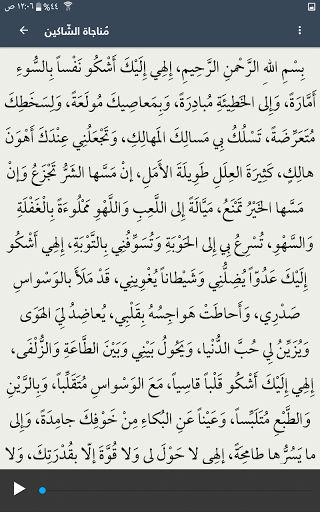 ١٢:٠٦ ص ٤٤٪
مُناجاة الشّاكين
بِسْمِ اللهِ الرَّحْمنِ الرَّحِيمِ، إِلهِي إِلَيْكَ أَشْكُو نَفْساً بِالسُّوءِ
أَمَّارَةً، وَإِلى الخَطِيئَةِ مُبادِرَةً، وَبِمَعاصِيكَ مُولَعَةً، وَلِسَخَطِكَ
مُتَعَرِّضَةً، تَسْلُكُ بِي مَسالِكَ المَهالِكِ، وَتَجْعَلُنِي عِنْدَكَ أَهْوَنَ
هالِكٍ، كَثِيرَةَ العِلَلِ طَوِيلَةَ الأَمَلِ، إنْ مَسَّها الشَرُّ تَجْزَعُ وَإنْ
مَسَّها الخَيْرُ تَمْنَعُ، مَيَّالَةً إِلى اللَّعِبِ وَاللَّهْوِ مَمْلُوءَةً بِالْغَفْلَةِ
وَالسَّهْوِ، تُسْرِعُ بِي إِلى الحَوْبَةِ وَتُسَوِّفُنِي بِالتَّوْبَةِ، إِلهِي أَشْكُو
إِلَيْكَ عَدُوّاً يُضِلُّنِي وَشَيْطاناً يُغْوِينِي، قَدْ مَلَأَ بِالوَسْواسِ
صَدْرِي، وَأَحاطَتْ هَواجِسُهُ بِقَلْبِي، يُعاضِدُ لِيَ الهَوَى
وَيُزَيِّنُ لِي حُبَّ الدُّنْيا، وَيَحُولُ بَيْنِي وَبَيْنَ الطَّاعَةِ وَالزُّلْفَى،
إِلهِي إِلَيْكَ أَشْكُو قَلْباً قاسِياً، مَعَ الوَسْواسِ مُتَقَلِّباً، وَبِالرَّيْنِ
وَالطَّبْعِ مُتَلَبِّساً، وَعَيْناً عَنِ البُكاءِ مِنْ خَوْفِكَ جامِدَةً، وَإِلى
ما يَسُرُّها طامِحَةً، إِلهِي لا حَوْلَ لِي وَلا قُوَّةَ إِلّا بِقُدْرَتِكَ، وَلا